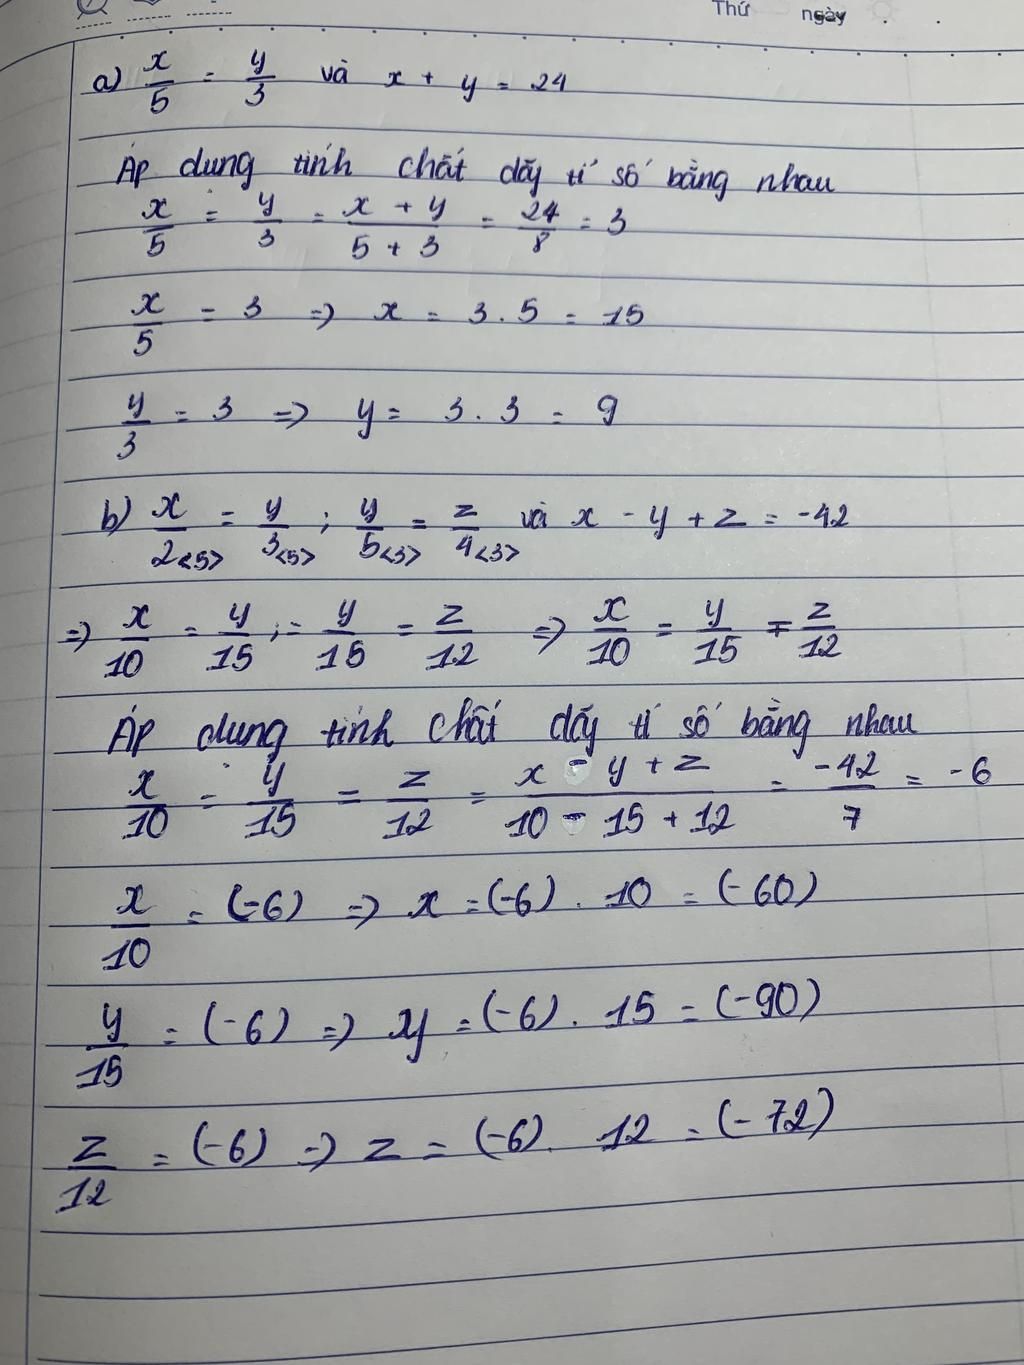 Thứ ngày
a) x/5 = y/3 và x + y = 24
Áp dụng tính chất dãy tỉ số bằng nhau
x/5 = y/3 = (x + y)/(5 + 3) = 24/8 = 3
x/5 = 3 => x = 3 . 5 = 15
y/3 = 3 => y = 3 . 3 = 9
b) x/2<5> = y/3<5> ; y/5<3> = z/4<3> và x - y + z = -42
=> x/10 = y/15 ; = y/15 = z/12 => x/10 = y/15 = z/12
Áp dụng tính chất dãy tỉ số bằng nhau
x/10 = y/15 = z/12 = (x - y + z)/(10 - 15 + 12) = -42/7 = -6
x/10 = (-6) => x = (-6) . 10 = (-60)
y/15 = (-6) => y = (-6) . 15 = (-90)
z/12 = (-6) => z = (-6) . 12 = (-72)